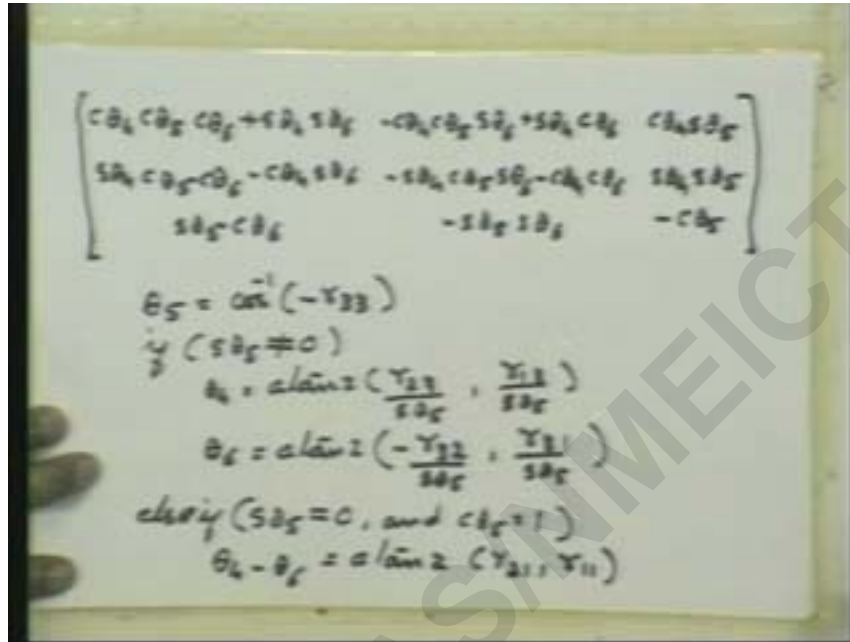 cθ₄cθ₅cθ₆+sθ₄sθ₆ -cθ₄cθ₅sθ₆+sθ₄cθ₆ cθ₄sθ₅
sθ₄cθ₅cθ₆-cθ₄sθ₆ -sθ₄cθ₅sθ₆-cθ₄cθ₆ sθ₄sθ₅
sθ₅cθ₆ -sθ₅sθ₆ -cθ₅
θ₅ = cos⁻¹(-r₃₃)
if (sθ₅≠0)
θ₄ = atan2(r₂₃/sθ₅, r₁₃/sθ₅)
θ₆ = atan2(-r₃₂/sθ₅, r₃₁/sθ₅)
elseif (sθ₅=0, and cθ₅=1)
θ₄-θ₆ = atan2 (r₂₁, r₁₁)
AS/NMEICT